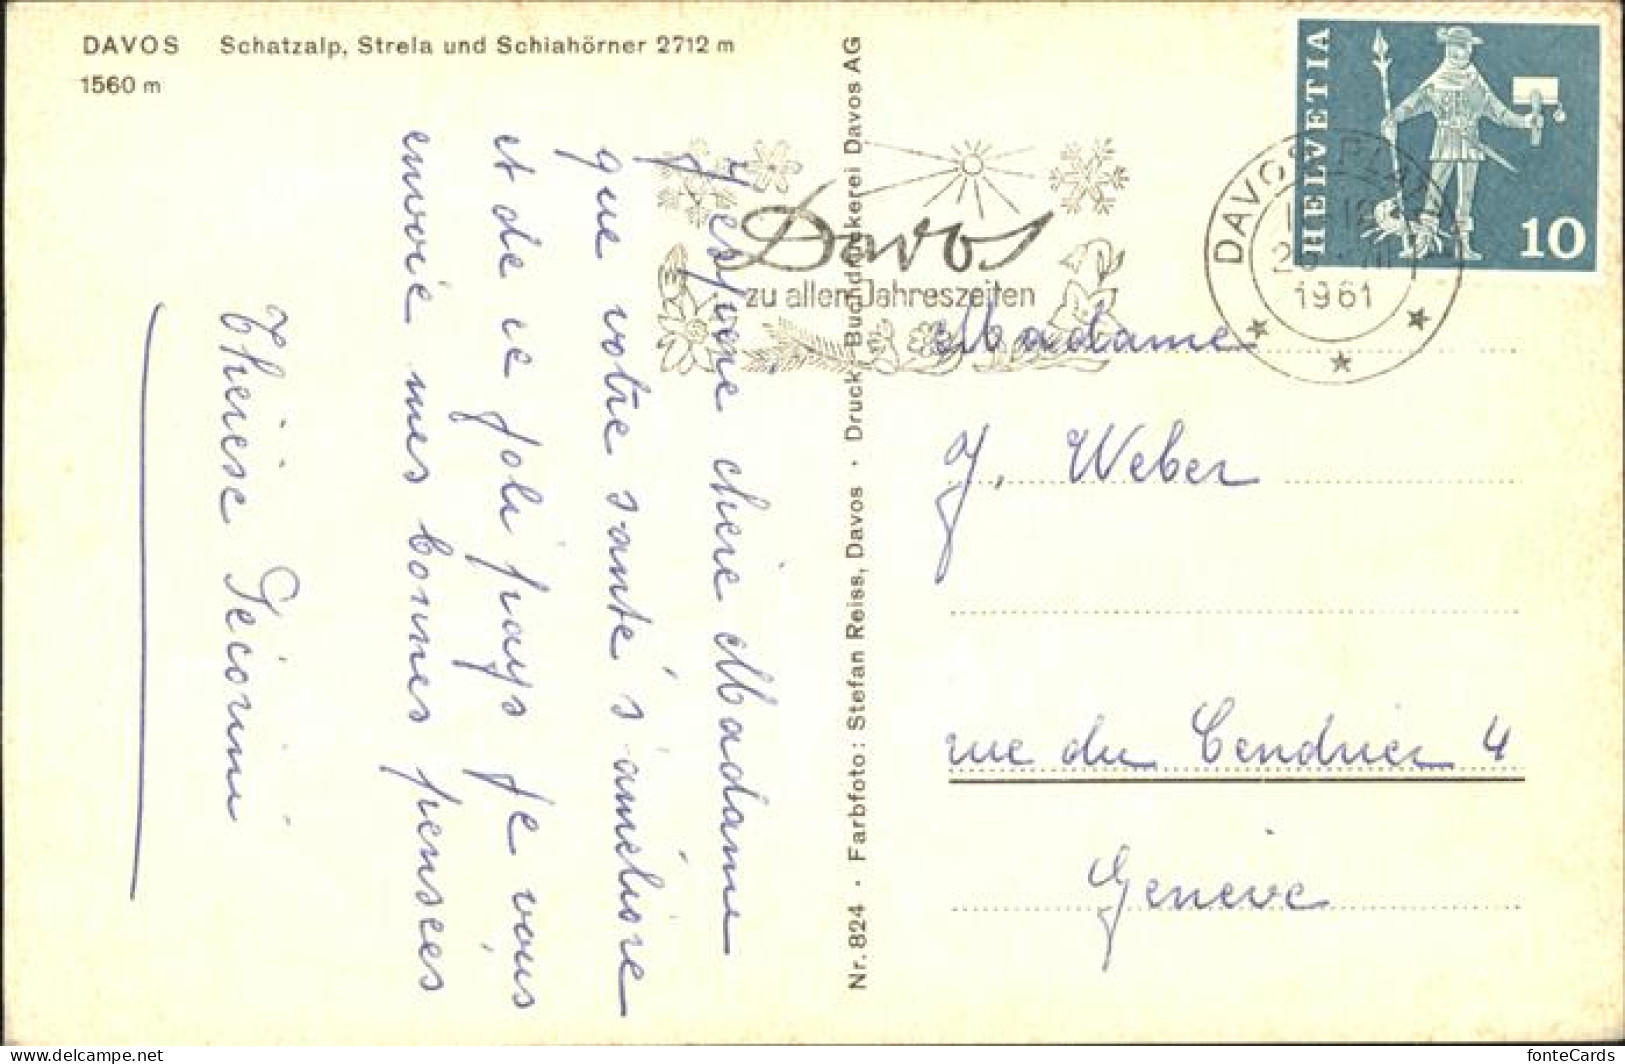 DAVOS Schatzalp, Strela und Schiahörner 2712 m
1560 m
J'espère chère Madame
que votre santé s'améliore
et de ce joli pays je vous
envoie mes bonnes pensées
Thérèse
Nr. 824 · Farbfoto: Stefan Reiss, Davos · Druck: Buchdruckerei Davos AG
Davos
zu allen Jahreszeiten
DAVOS
1961
HELVETIA
10
Madame
J. Weber
rue du Cendrier 4
Genève
fonteCards